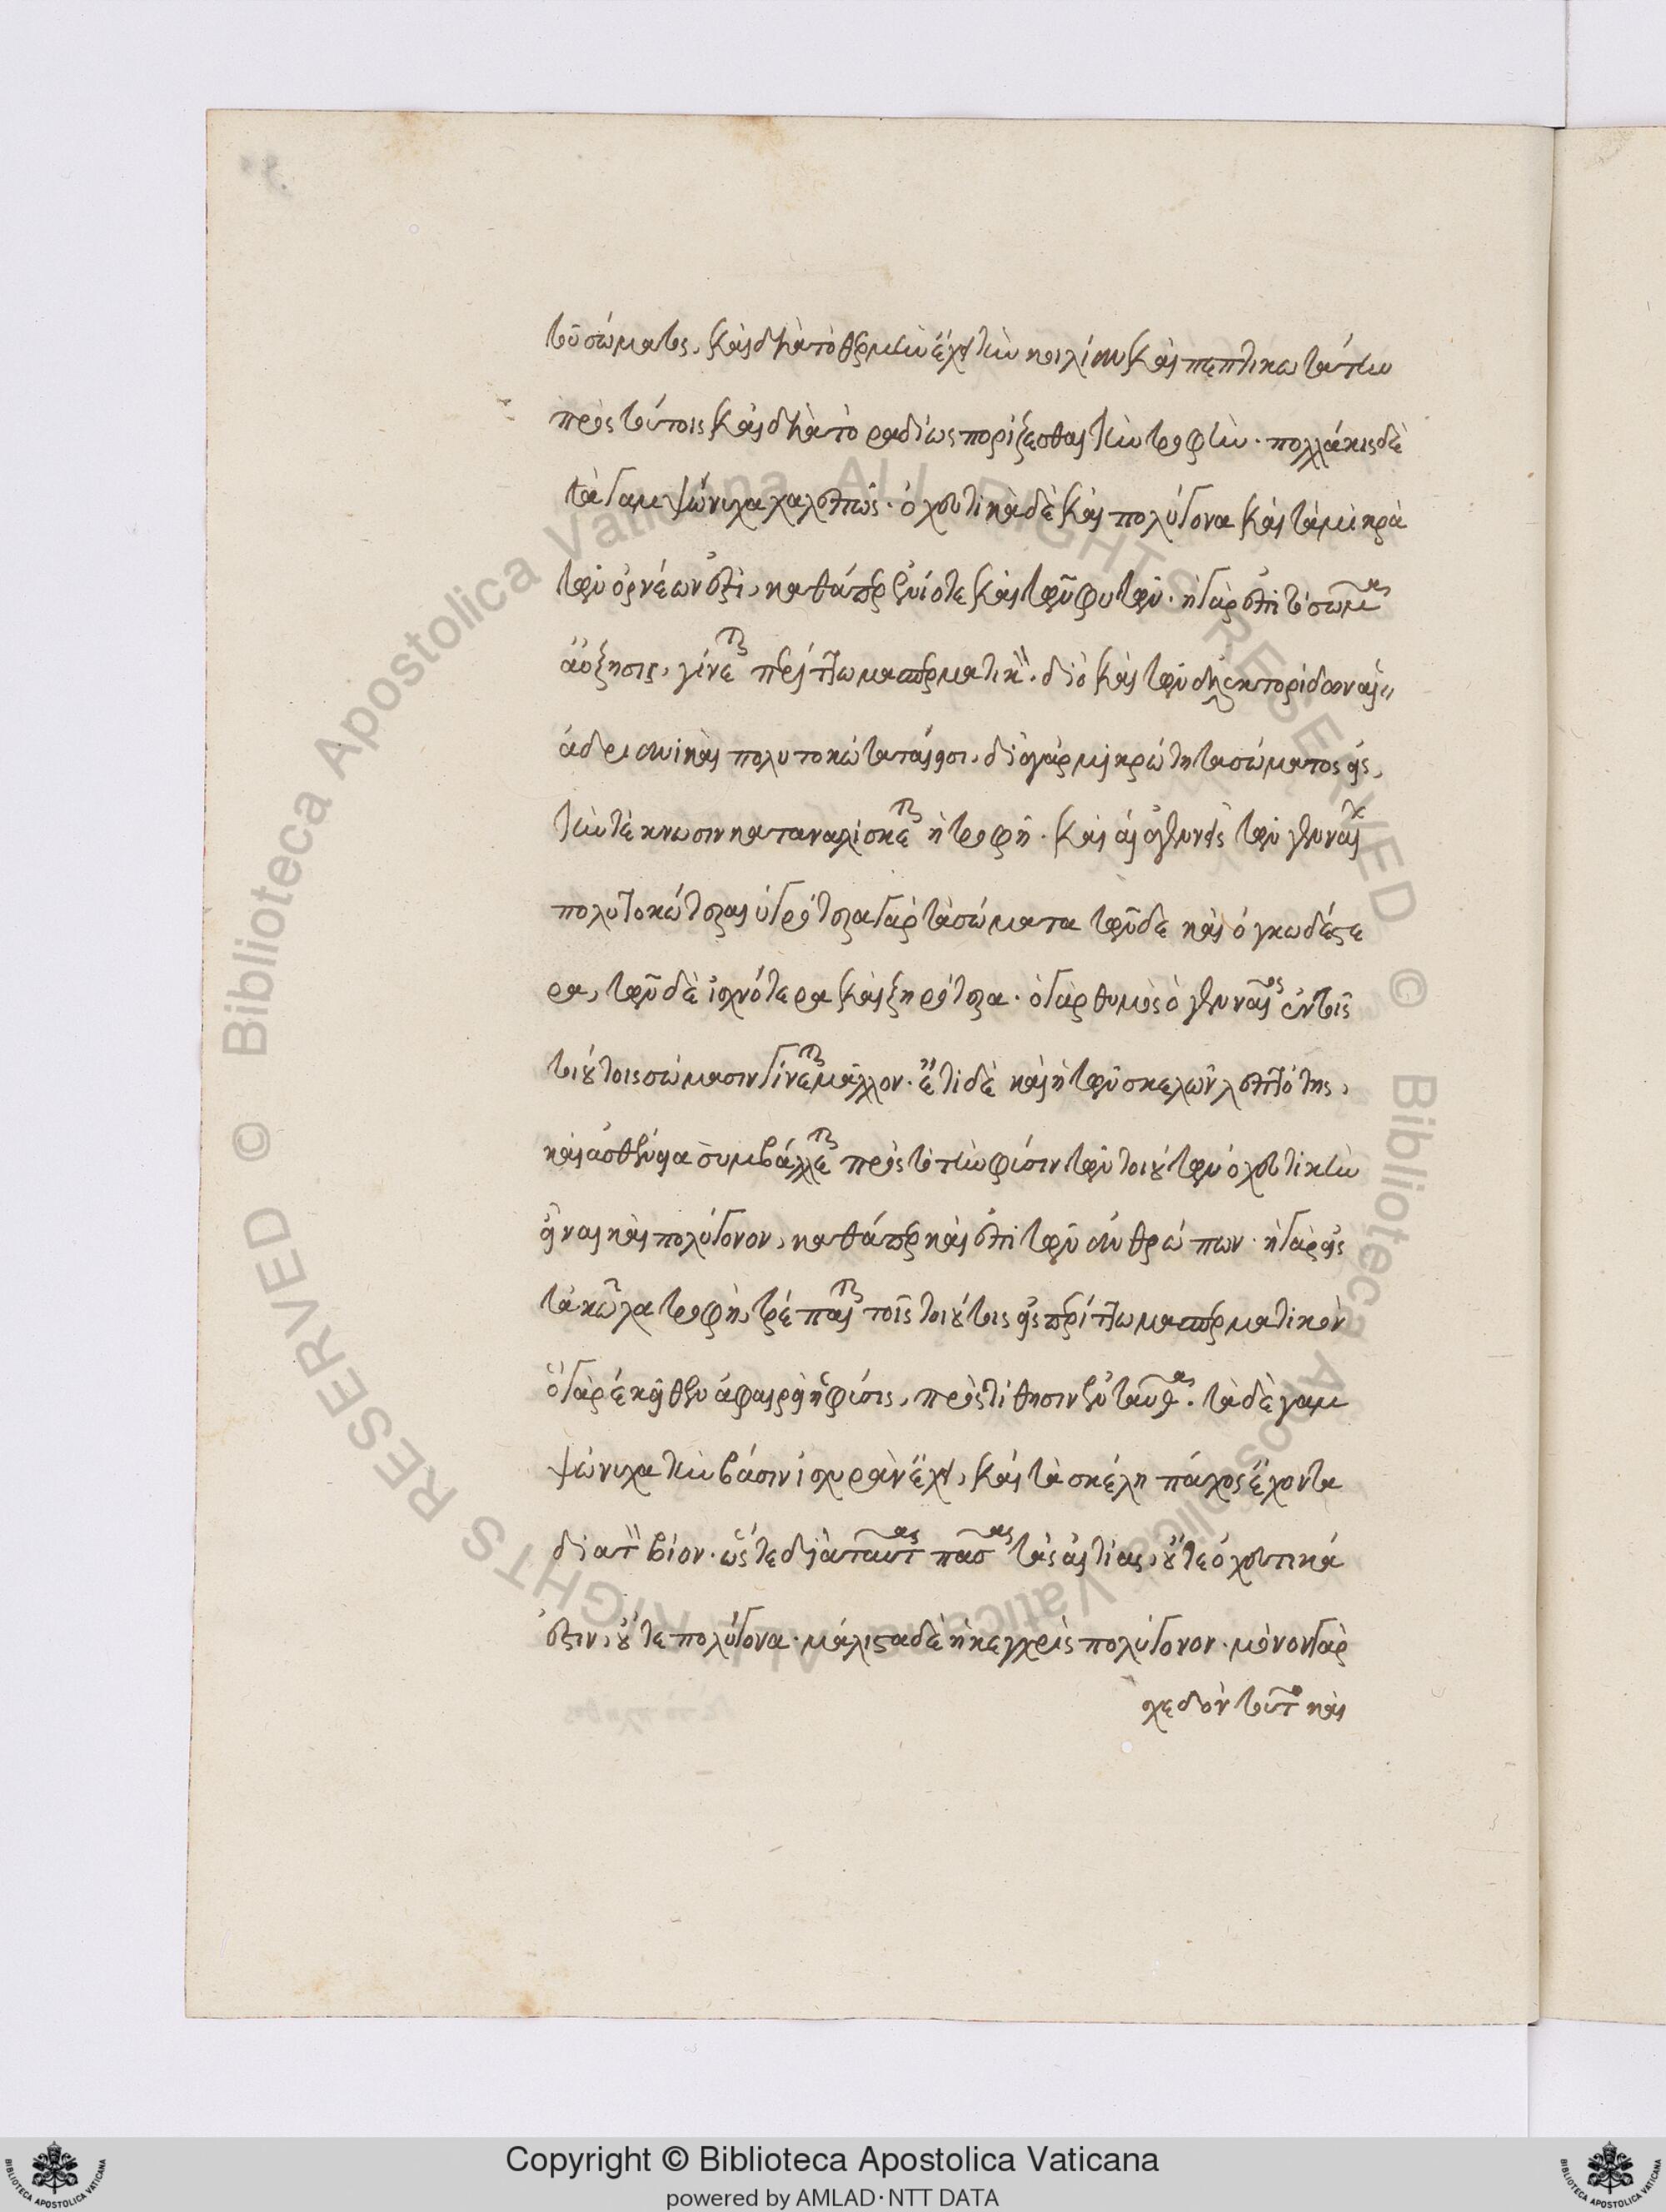 τοῦ σώματος, καὶ διὰ τὸ θερμὴν ἔχειν τὴν κοιλίαν καὶ πεπτικωτάτην
πρὸς τούτοις καὶ διὰ τὸ ῥαδίως πορίζεσθαι τὴν τροφήν· πολλάκις δὲ
τὰ γαμψώνυχα χαλεπῶς· ὀχευτικὰ δὲ καὶ πολύγονα καὶ τὰ μικρὰ
τῶν ὀρνέων ἐστὶ, καθάπερ ἐνίοτε καὶ τῶν φυτῶν· ἡ γὰρ ἐπὶ τὸ σῶμα
αὔξησις, γίνεται περίττωμα σπερματικ· διὸ καὶ τῶν ἀλεκτορίδων αἱ
ἀδριανικαὶ πολυτοκώταταί εἰσι, διὰ γὰρ μικρότητα σώματος εἰς
τὴν τέκνωσιν καταναλίσκεται ἡ τροφή. καὶ αἱ ἀγεννεῖς τῶν γενναίων
πολυτοκώτεραι ὑγρότερα γὰρ τὰ σώματα τῶν δὲ καὶ ὀγκωδέστε
ρα, τῶν δὲ ἰσχνότερα καὶ ξηρότερα· ὁ γὰρ θυμὸς ὁ γενναῖος ἐν τοῖς
τοιούτοις σώμασιν γίνεται μᾶλλον. ἔτι δὲ καὶ ἡ τῶν σκελῶν λεπτότης,
καὶ ἀσθένεια συμβάλλεται πρὸς τὸ τὴν φύσιν τῶν τοιούτων ὀχευτικὴν
εἶναι καὶ πολύγονον, καθάπερ καὶ ἐπὶ τῶν ἀνθρώπων· ἡ γὰρ εἰς
τὰ κῶλα τροφὴ, τρέπεται τοῖς τοιούτοις εἰς περίττωμα σπερματικόν
ὃ γὰρ ἐκεῖθεν ἀφαιρεῖ ἡ φύσις, προστίθησιν ἐνταῦθα. τὰ δὲ γαμ
ψώνυχα τὴν βάσιν ἰσχυρὰν ἔχει, καὶ τὰ σκέλη πάχος ἔχοντα
διὰ τ βίον· ὥστε διὰ ταύτας πάσας τὰς αἰτίας, οὔτε ὀχευτικά
ἐστιν, οὔτε πολύγονα· μάλιστα δὲ ἡ κεγχρὶς πολύγονον· μόνον γὰρ
σχεδὸν τοῦτο καὶ
Copyright © Biblioteca Apostolica Vaticana
powered by AMLAD·NTT DATA